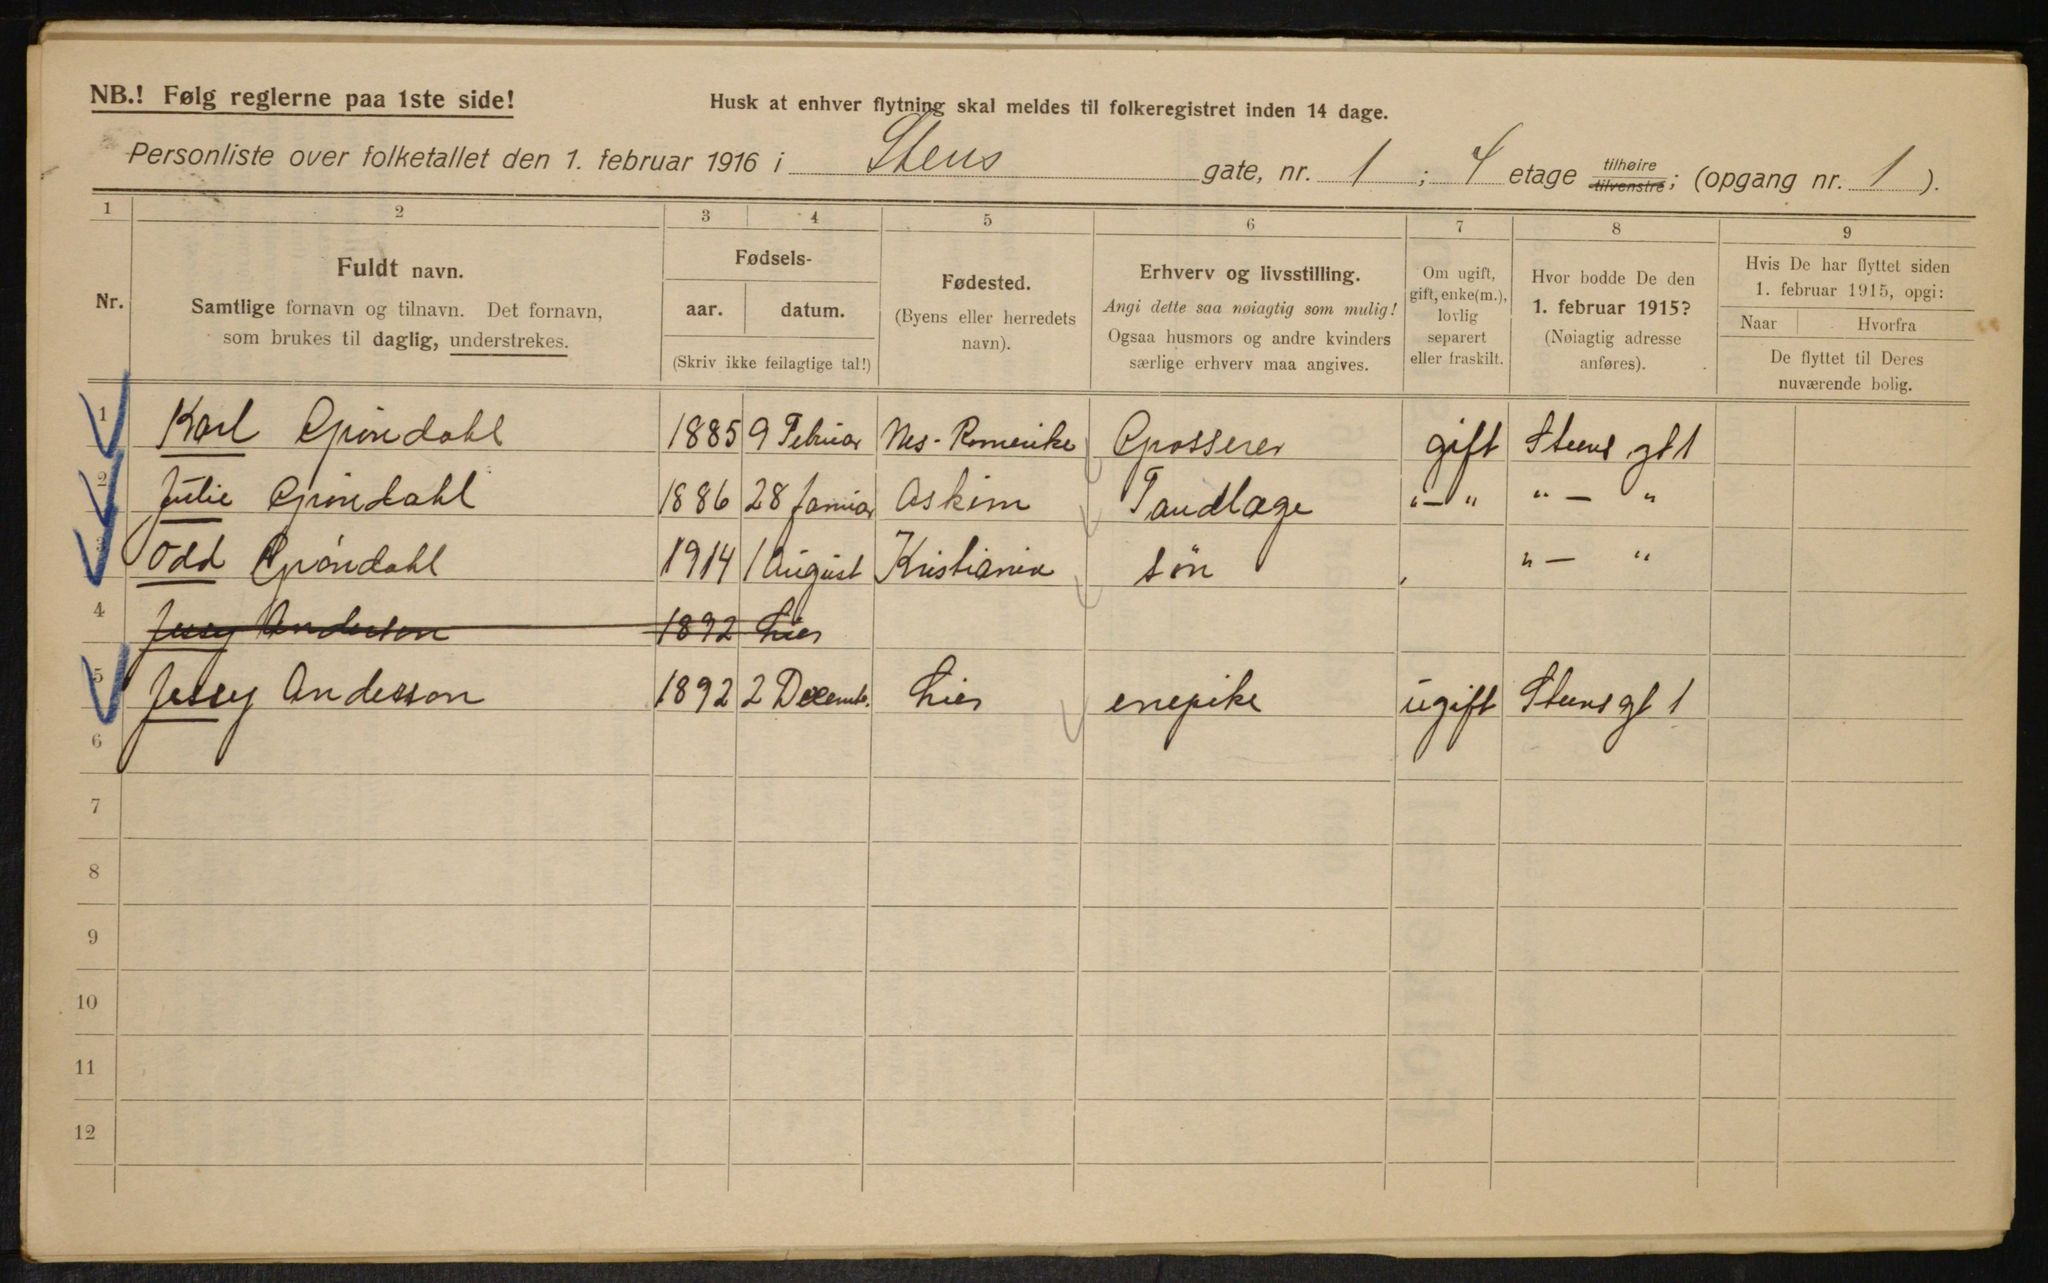 NB.! Følg reglerne paa 1ste side!
Husk at enhver flytning skal meldes til folkeregistret inden 14 dage.
Personliste over folketallet den 1. februar 1916 i Stens gate, nr. 1; 4 etage tilhøire tilvenstre; (opgang nr. 1).
1 2 3 4 5 6 7 8 9
Nr.
Fuldt navn.
Samtlige fornavn og tilnavn. Det fornavn,
som brukes til daglig, understrekes.
Fødsels-
aar. datum.
(Skriv ikke feilagtige tal!)
Fødested.
(Byens eller herredets
navn).
Erhverv og livsstilling.
Angi dette saa nøiagtig som mulig!
Ogsaa husmors og andre kvinders
særlige erhverv maa angives.
Om ugift,
gift, enke(m.),
lovlig
separert
eller fraskilt.
Hvor bodde De den
1. februar 1915?
(Nøiagtig adresse
anføres).
Hvis De har flyttet siden
1. februar 1915, opgi:
Naar Hvorfra
De flyttet til Deres
nuværende bolig.
1 Karl Gröndahl 1885 9 Februar Nes-Romerike Grosserer gift Stens gt 1
2 Julie Gröndahl 1886 28 Januar Askim Tandlæge "—" "— "
3 Odd Gröndahl 1914 1 August Kristiania sön "— "
4 Jessy Anderson 1892 Lier
5 Jessy Anderson 1892 2 Decemb. Lier enepike ugift Stens gt 1
6
7
8
9
10
11
12